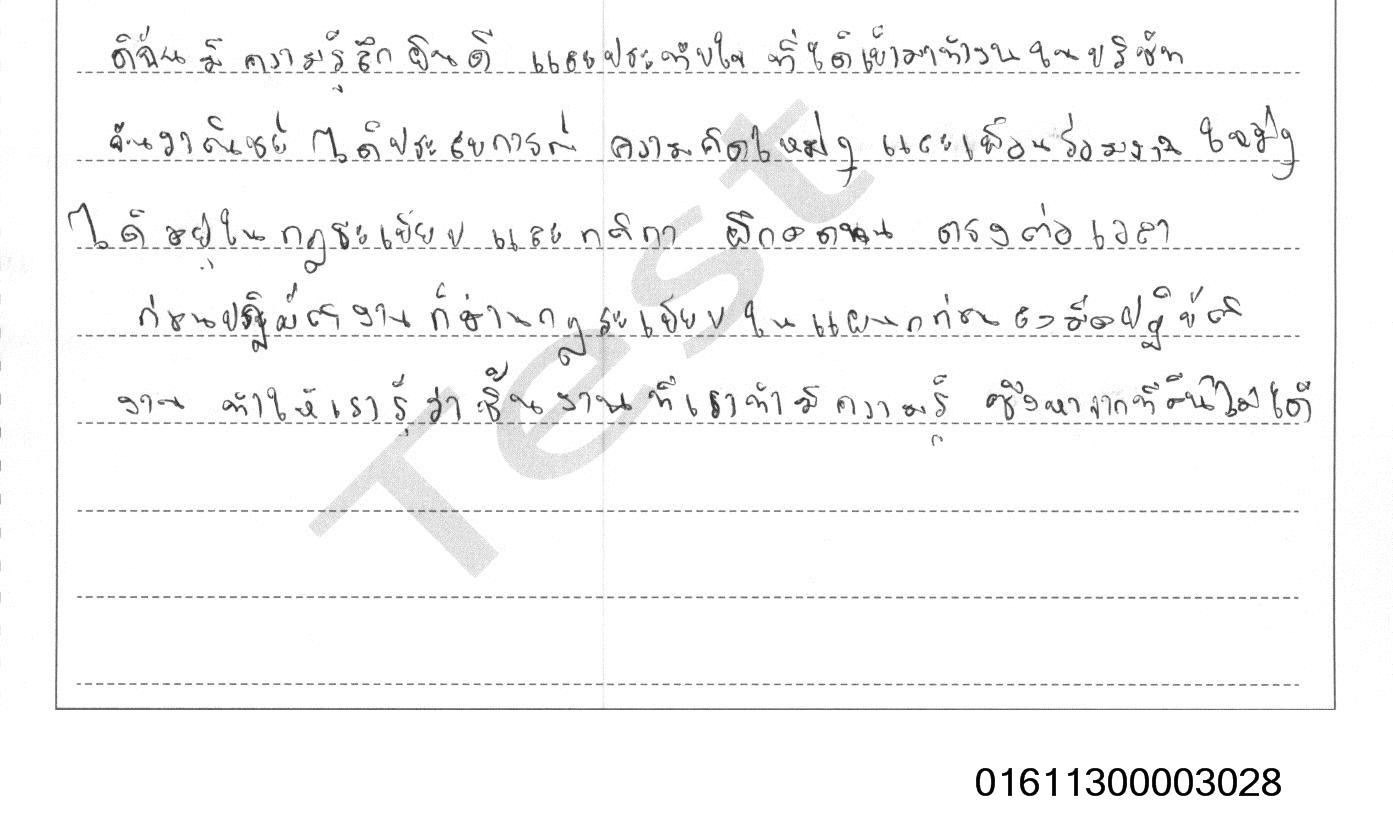 ดิฉันมีความรู้สึกยินดี และประทับใจ ที่ได้เข้ามาทำงานในบริษัท
ได้ประสบการณ์ ความคิดใหม่ๆ และเพื่อนร่วมงาน ใหม่ๆ
ได้อยู่ในกฎระเบียบ และกติกา ฝึกอดทน ตรงต่อเวลา
ก่อนปฏิบัติงานก็อ่านกฎระเบียบในแผนกก่อน ลงมือปฏิบัติ
งาน ทำให้เรารู้ว่าชิ้นงานที่เราทำมีความรู้ ซึ่งหาจากที่อื่นไม่ได้
Test
01611300003028